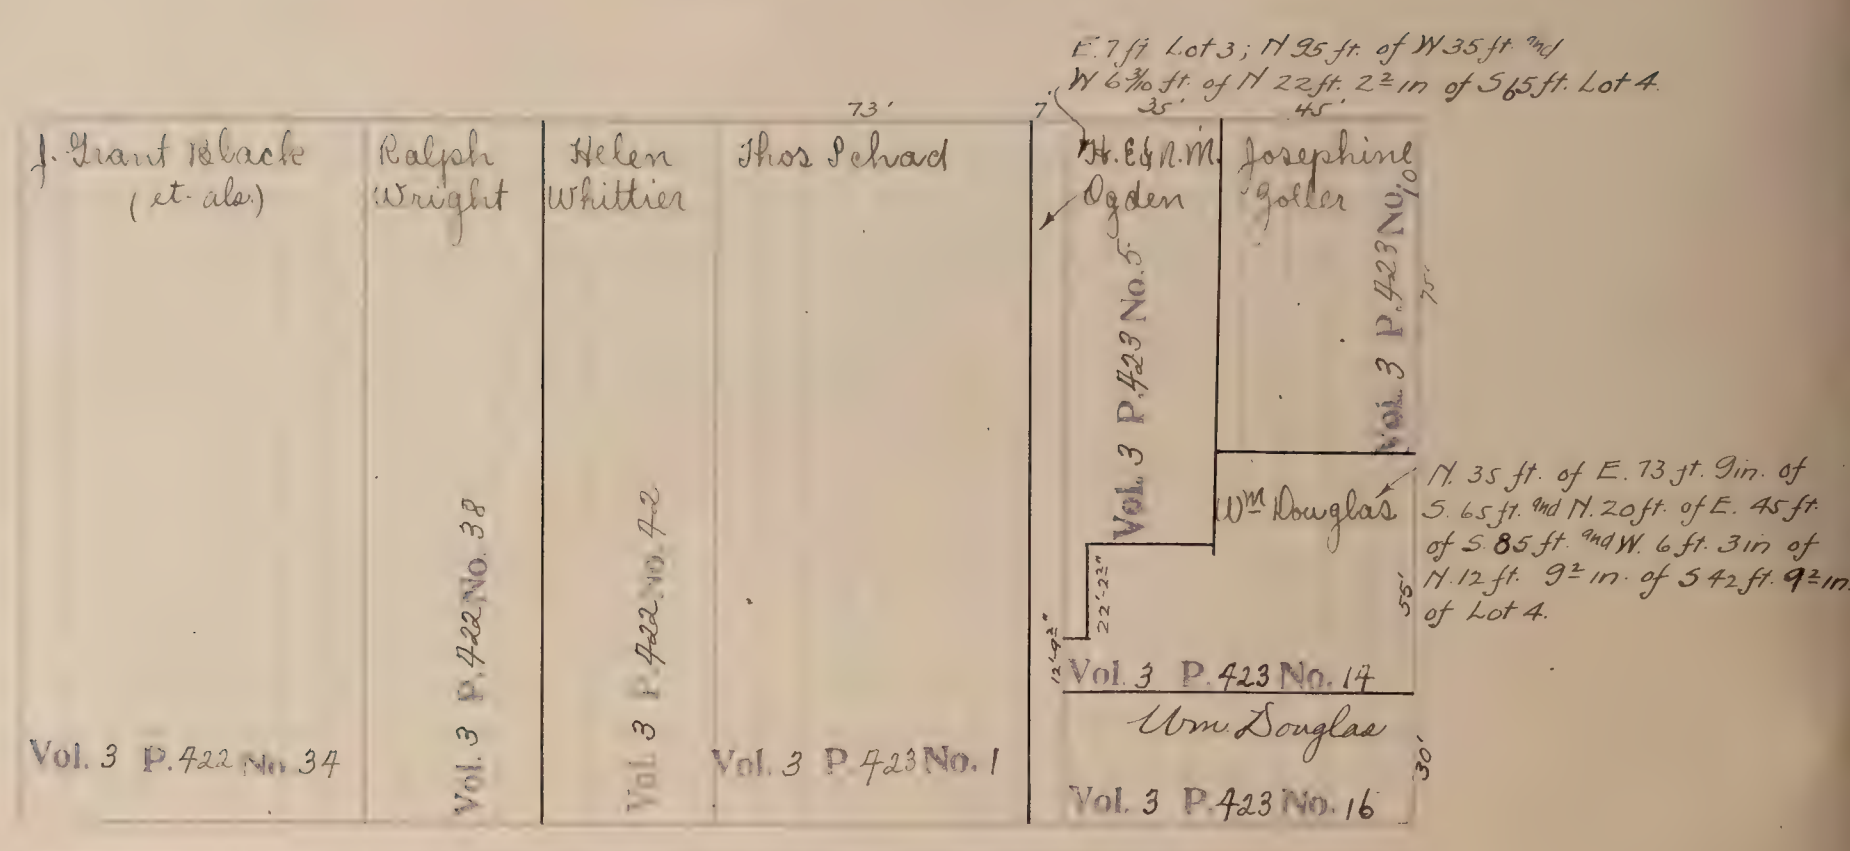 E. 7 ft Lot 3; N 95 ft. of W 35 ft. and
W 6 3/10 ft. of N 22 ft. 2 2 in of S 65 ft. Lot 4.
73' 7' 35' 45'
J. Grant Black
(et. als.)
Vol. 3 P. 422 No. 34
Ralph
Wright
Vol. 3 P. 422 No. 38
Helen
Whittier
Vol. 3 P. 422 No. 42
Thos Schad
Vol. 3 P. 423 No. 1
H. E. & N. M.
Ogden
Vol. 3 P. 423 No. 5
Josephine
Vol. 3 P. 423 No. 10
75'
Wm Douglas
N. 35 ft. of E. 73 ft. 9 in. of
S. 65 ft. and N. 20 ft. of E. 45 ft.
of S. 85 ft. and W. 6 ft. 3 in of
N. 12 ft. 9 2 in. of S 42 ft. 9 2 in.
of Lot 4.
22'-2 2"
12'-9 2"
55'
Vol. 3 P. 423 No. 14
Wm. Douglas
30'
Vol. 3 P. 423 No. 16